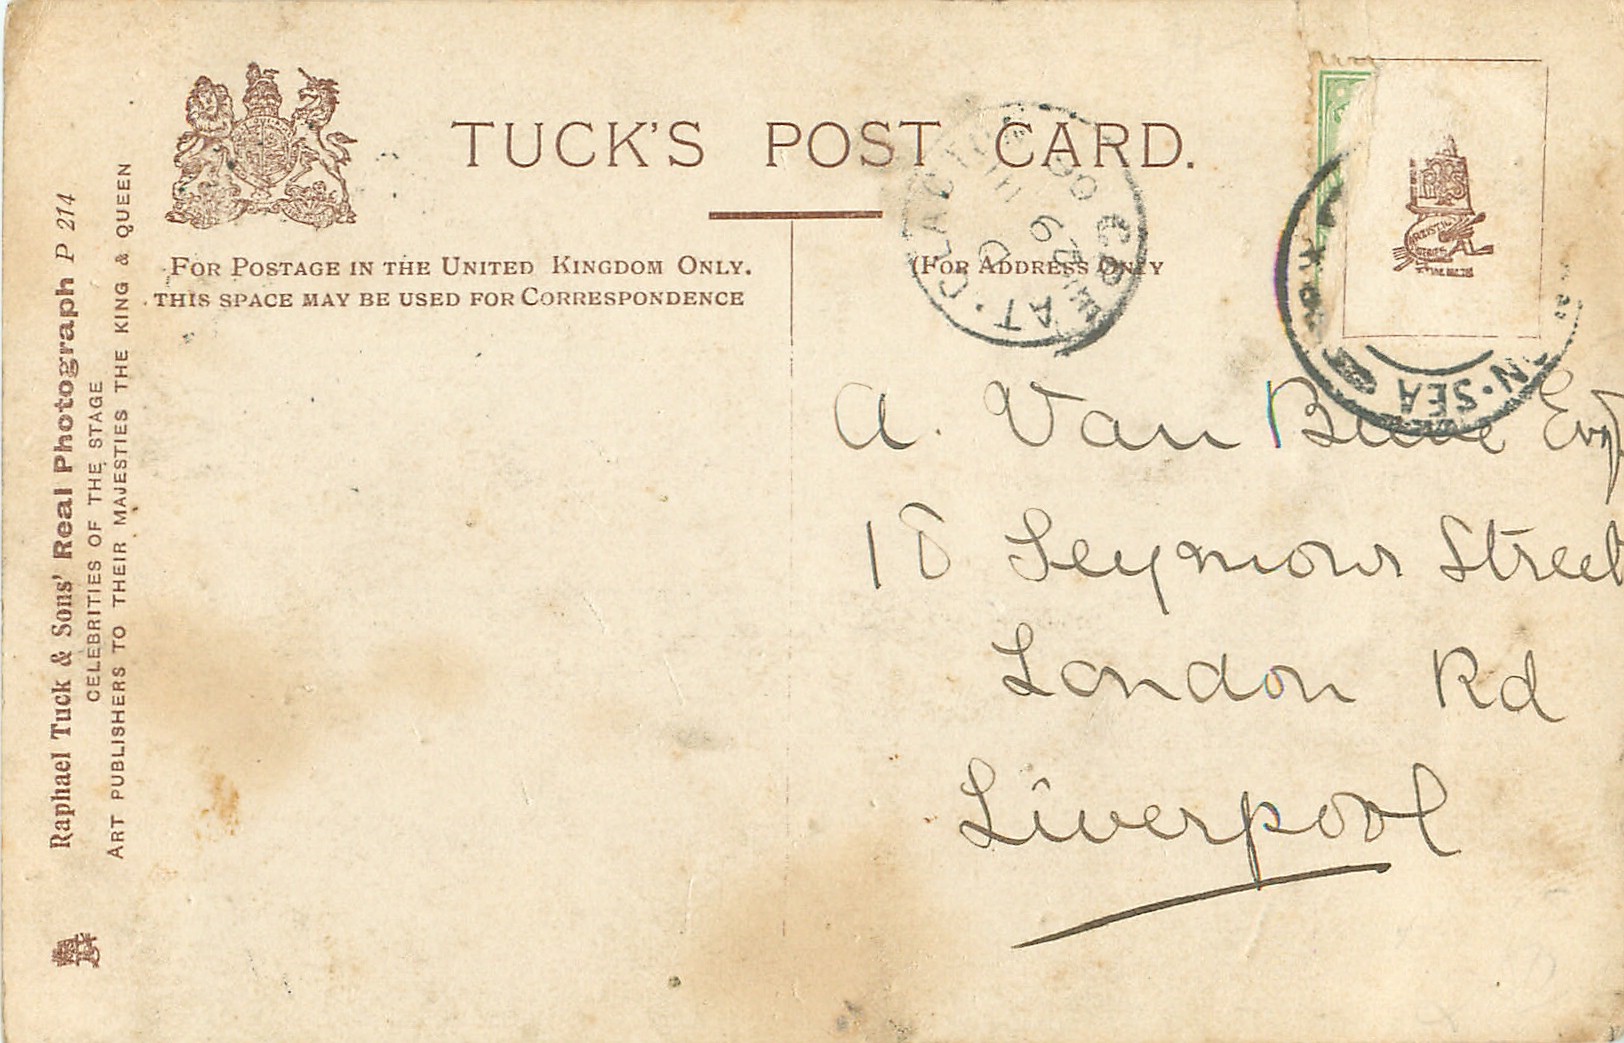 TUCK'S POST CARD.
FOR POSTAGE IN THE UNITED KINGDOM ONLY.
THIS SPACE MAY BE USED FOR CORRESPONDENCE
(FOR ADDRESS ONLY
Raphael Tuck & Sons' Real Photograph P 214
CELEBRITIES OF THE STAGE
ART PUBLISHERS TO THEIR MAJESTIES THE KING & QUEEN
CLACTON
N·SEA
A. Van
18 Seymour Street
London Rd
Liverpool